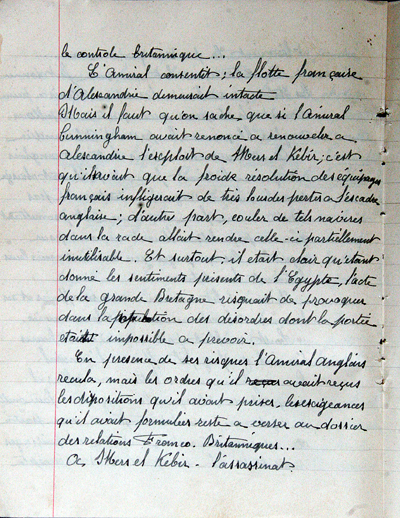 le contrôle britannique...
L'Amiral consentit; la flotte française
d'Alexandrie demeurait intacte
Mais il faut qu'on sache que si l'Amiral
Cunningham avait renoncé a renouveler a
Alexandrie l'exploit de Mers el Kébir, c'est
qu'il savait que la froide résolution des équipages
français infligerait de très lourdes pertes a l'escadre
anglaise; d'autre part, couler de tels navires
dans la rade allait rendre celle-ci partiellement
inutilisable. Et surtout, il etait clair qu'etant
donné les sentiments présents de l'Egypte, l'acte
de la grande Bretagne risquait de provoquer
dans la population des désordres dont la portée
etait impossible a prevoir.
En presence de ses risques l'Amiral anglais
recula, mais les ordres qu'il avait reçus
les dispositions qu'il avait prises, les exigeances
qu'il avait formulées reste a verser au dossier
des relations Franco. Britanniques...
A Mers el Kébir - l'assassinat.